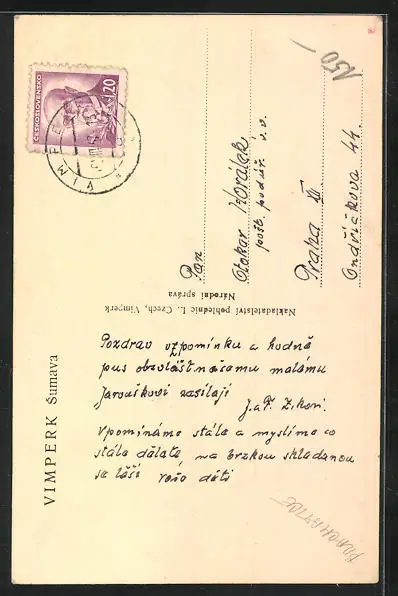 ČESKOSLOVENSKO
1.20
VIMPERK
150
Pan
Otakar Horálek
pošt. pod.úř. v.v.
Praha XI
Ondříčkova 44.
Nakladatelství pohlednic L. Czech, Vimperk
Národní správa
VIMPERK Šumava
Pozdrav vzpomínku a hodně
pus obzvlášt našemu malému
Jarouškovi zasílají
J. a F.
Vpomínáme stále a myslíme co
stále děláte, na brzkou
se těší Vaše děti